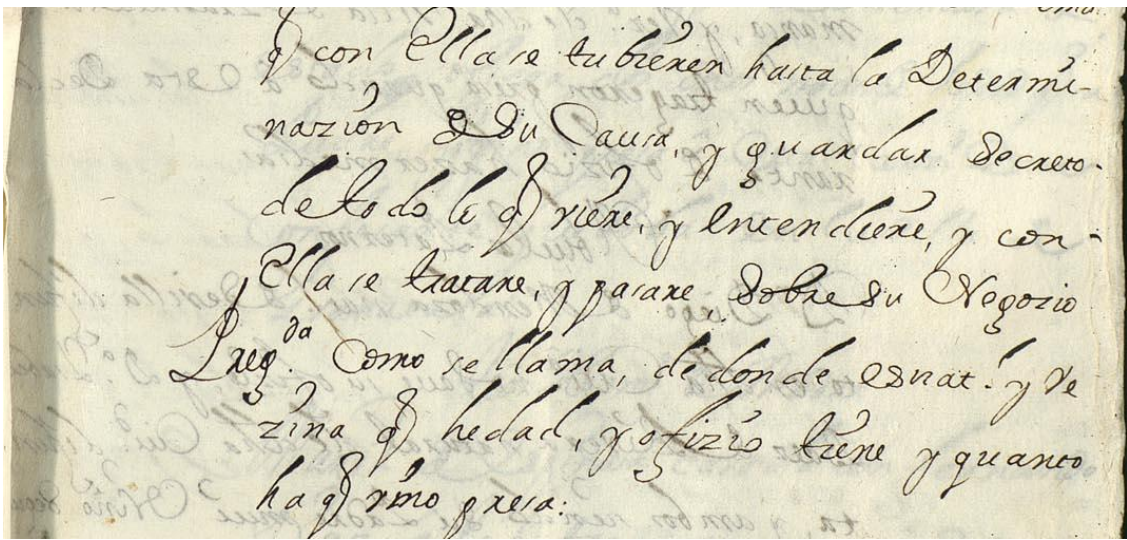 q̃ con Ella se tubieren hasta la Determi-
nazion de su Causa, y guardar Secreto
de todo lo q̃ viere, y entendiere, y con
Ella se tratare, y pasare sobre su Negozio
Preg.da Como se llama, de donde es nat.l y Ve
zina q̃ hedad, y ofizio tiene y quanto
ha q̃ vino presa.